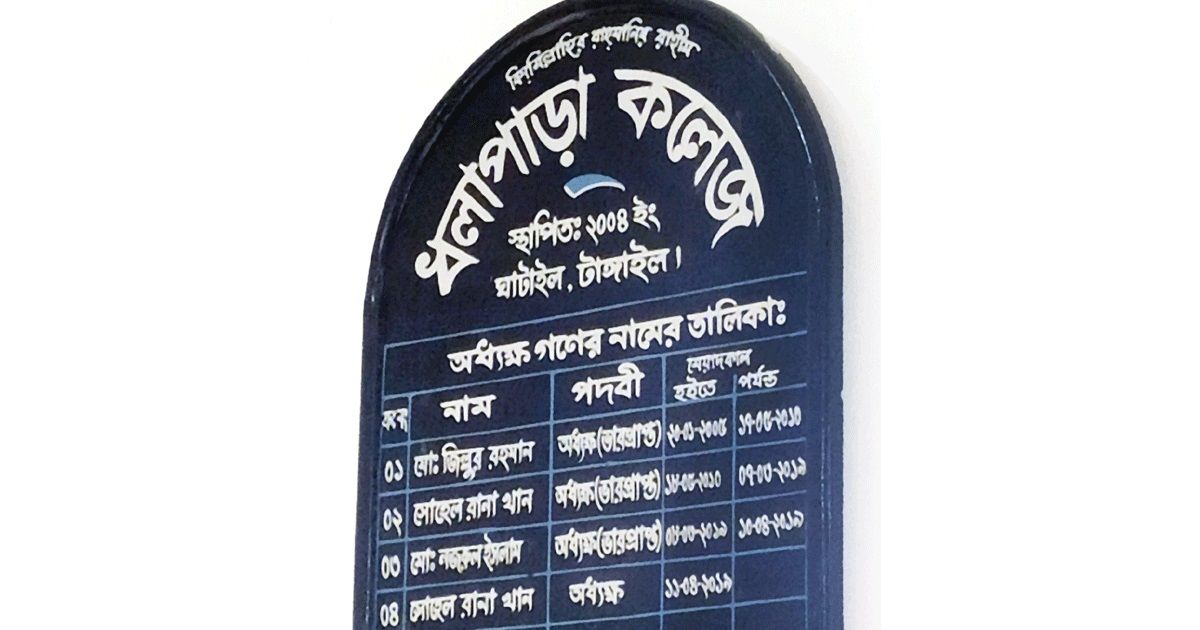 বিসমিল্লাহির রাহমানির রাহীম
ধলাপাড়া কলেজ
স্থাপিত: ২০০৪ ইং
ঘাটাইল, টাঙ্গাইল।
অধ্যক্ষ গণের নামের তালিকা:
নাম পদবী মেয়াদকাল
হইতে পর্যন্ত
০১ মো: জিল্লুর রহমান অধ্যক্ষ(ভারপ্রাপ্ত) ২০-০১-২০০৫ ১৭-০৫-২০১০
০২ সোহেল রানা খান অধ্যক্ষ(ভারপ্রাপ্ত) ১৮-০৫-২০১০ ০৭-০৩-২০১৯
০৩ মো: নজরুল ইসলাম অধ্যক্ষ(ভারপ্রাপ্ত) ০৮-০৩-২০১৯ ১০-০৪-২০১৯
০৪ সোহেল রানা খান অধ্যক্ষ ১১-০৪-২০১৯